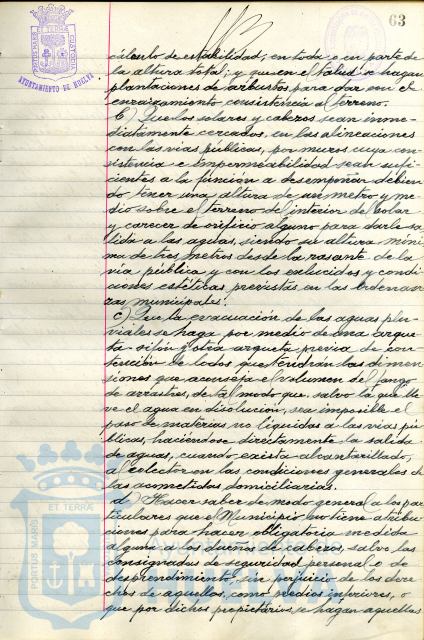 63
PORTUS MARIS ET TERRÆ CUSTODIA
AYUNTAMIENTO DE HUELVA
cálculo de estabilidad, en toda o en parte de
la altura total; y que en el talud se hagan
plantaciones de arbustos para dar con el
enraizamiento consistencia al terreno.
b) Que los solares y cabezos sean inme-
diatamente cercados, en las alineaciones
con las vías públicas, por muros cuya con-
sistencia e impermeabilidad sean sufi-
cientes a la función a desempeñar debien
do tener una altura de un metro y me-
dio sobre el terreno del interior del solar
y carecer de orificio alguno para darle sa-
lida a las aguas, siendo su altura míni
ma de tres metros desde la rasante de la
vía pública y con los enlucidos y condi-
ciones estéticas previstas en las ordenan-
zas municipales.
c) Que la evacuación de las aguas plu-
viales se haga por medio de una arque
ta sifón y otra arqueta previa de con-
tención de lodos que tendrán las dimen
siones que aconseja el volumen de fango
de arrastres, de tal modo que, salvo la que lle
ve el agua en disolución, sea imposible el
paso de materias no líquidas a las vías pú
blicas, haciéndose directamente la salida
de aguas, cuando exista alcantarillado,
al colector en las condiciones generales de
las acometidas domiciliarias.
d) Hacer saber de modo general a los par
ticulares que el Municipio no tiene atribu
ciones para hacer obligatoria medida
alguna a los dueños de cabezos, salvo las
consignadas de seguridad personal o de
desprendimiento, sin perjuicio de los dere
chos de aquellos, como predios inferiores, o
que por dichos propietarios, se hagan aquellas
PORTUS MARIS ET TERRÆ
Ayuntamiento
HUELVA